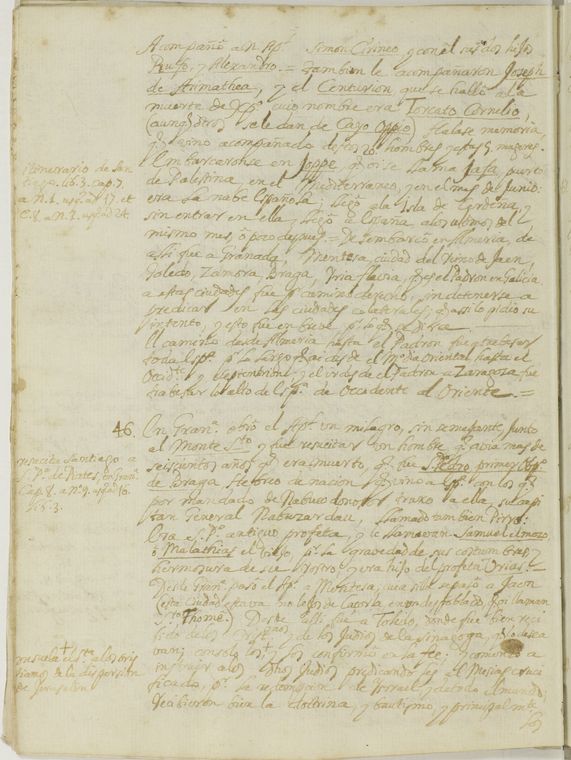 Acompañó al Appl. Simon Cirineo y con el sus dos hijos
Rufo, y Alexandro. = tambien le acompañaron Joseph
de Arimathea, y el Centurion que se halló a la
muerte de Xpo cuio nombre era Torcato Cornelio,
(aunq otros se le dan de Cayo Oppio)
vino acompañado de hombres y mugeres.
Embarcaronse en Joppe, q oi se llama Jafa, puerto
de Palestina en el Mediterraneo, y en el mes de Junio:
era la nabe Española; llegó a la Isla de Cerdeña, y
sin entrar en ella, llegó a España a los ultimos del
mismo mes, ó poco despues = Desembarcó en Almeria, de
allí fue a Granada, Mentesa, ciudad del Reino de Jaen,
Toledo, Zamora, Braga, Iria flavia, q es el Padron en Galicia
a estas ciudades fue camino derecho, sin detenerse a
predicar en las ciudades colaterales, q assi lo pidio su
intento, y esto fue en
El camino desde Almeria hasta el Padron fue atrabesar
toda Esp. desde el Oriental hasta el
y Septentrion y el desde el Padron a Zaragoza fue
trabesar lo alto de Esp. de Occidente al Oriente. =
Itinerario de San
tiago. lib. 3. cap. 7.
46. En Gran. obró el Appl. un milagro, sin semejante, junto
al Monte Sto y fue resucitar un hombre q avia mas de
seiscientos años q era muerto, q fue S. Pedro primer Obpo
de Braga Hebreo de nacion q vino a Esp. con los q
por mandado de Nabucodonosor traxo a ella, su capi
tan General Nabuzardan, llamado tambien Pirro:
Era S. Po antiguo profeta, y le llamavan Samuel el mozo,
o Malathias el viejo, por la gravedad de sus costumbres, y
hermosura de su rostro, y era hijo del profeta Urias. =
Desde Gran. pasó el Appl. a Mentesa, cuia silla se pasó a Jaen
(esta Ciudad estava no lejos de Cazorla en un despoblado, q oi llaman
Sto Thome.) Desde alli fue a Toledo, donde fue bien reci
bido de los de los Judios de la sinagoga, q lo desea
van; consoló los, y los confirmó en la fee; y comenzó a
instruir a los otros Judios predicandoles el Mesias cruci
ficado, por la redempcion de Israel y de todo el mundo;
recibieron bien la doctrina, y bautismo, y principalmte
los
resucita Santiago a
S. Po de Rates, en Gran.
Cap. 8. a n. 9. usq ad 16.
lib. 3.
a los cris
tianos de la dispersion
de Jerusalem